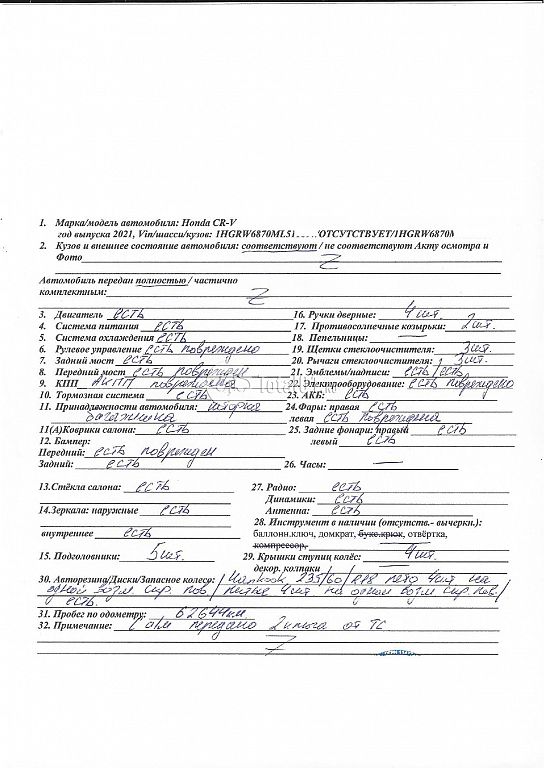 1. Марка/модель автомобиля: Honda CR-V
год выпуска 2021, Vin/шасси/кузов: 1HGRW6870ML51...../ОТСУТСТВУЕТ/1HGRW6870M
2. Кузов и внешнее состояние автомобиля: соответствуют / не соответствуют Акту осмотра и
Фото
Автомобиль передан полностью / частично
комплектным:
3. Двигатель есть
4. Система питания есть
5. Система охлаждения есть
6. Рулевое управление есть повреждено
7. Задний мост есть
8. Передний мост есть поврежден
9. КПП АКПП повреждена
10. Тормозная система есть
11. Принадлежности автомобиля: шторка
багажника
11(А)Коврики салона: есть
12. Бампер:
Передний: есть поврежден
Задний: есть
16. Ручки дверные: 4 шт.
17. Противосолнечные козырьки: 2 шт.
18. Пепельницы: —
19. Щетки стеклоочистителя: 3 шт.
20. Рычаги стеклоочистителя: 3 шт.
21. Эмблемы/надписи: есть/есть
22. Электрооборудование: есть повреждено
23. АКБ: есть
24.Фары: правая есть
левая есть повреждена
25. Задние фонари: правый есть
левый есть
26. Часы: —
13.Стёкла салона: есть
14.Зеркала: наружные есть
внутреннее есть
15. Подголовники: 5 шт.
27. Радио: есть
Динамики: есть
Антенна: есть
28. Инструмент в наличии (отсутств.- вычеркн.):
баллонн.ключ, домкрат, букс.крюк, отвёртка,
компрессор,
29. Крышки ступиц колёс: 4 шт.
декор. колпаки
30. Авторезина/Диски/Запасное колесо: Hankook 235/60/R18 лето 4 шт на
одной возм. скр. пов./ литые 4 шт на одном возм. скр. пов./
есть.
31. Пробег по одометру: 62644 км
32. Примечание: передано 2 ключа от ТС